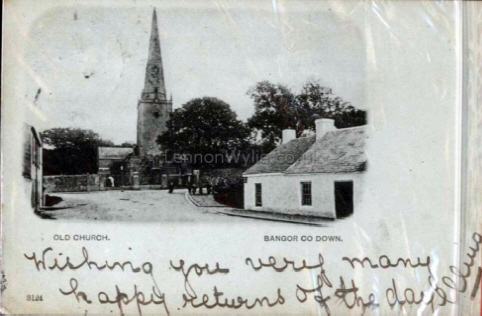 LennonWylie.co.uk
OLD CHURCH. BANGOR CO DOWN.
Wishing you very many
happy returns of the day
8124